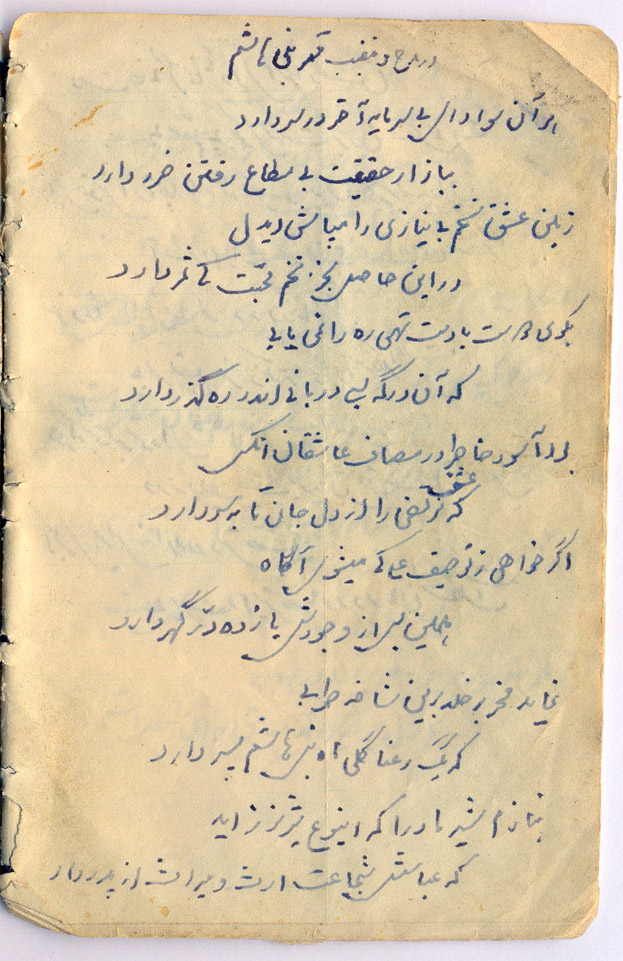 در مدح و منقب قمر بنی هاشم
هر آن سودا دل بی سرمایه آخر در سر دارد
ببازار حقیقت بی مطاع رفتن ضرر دارد
زبان عشق تخم بی نیازی را میپاش دیدل
در این حاصل بجز تخم محبت کی ثمر دارد
بکوی دوست با دست تهی ره را نمی یابی
که آن درگه بسی دربانی اندر ره گذر دارد
بود آسوده خاطر در مصاف عاشقان آنکس
که عشق را از دل جان تا به سر دارد
اگر خواهی ز توصیف علی کی میشوی آگاه
همین بس از وجودش یازده در گهر دارد
نماید فخر بر خلد برین شاخه طوبی
که یک رعنا گلی ماه بنی هاشم پسر دارد
بنازم شیر مادر را که اینوع شیر نر زاید
که عباسش شجاعت ارث و میراث از پدر دارد